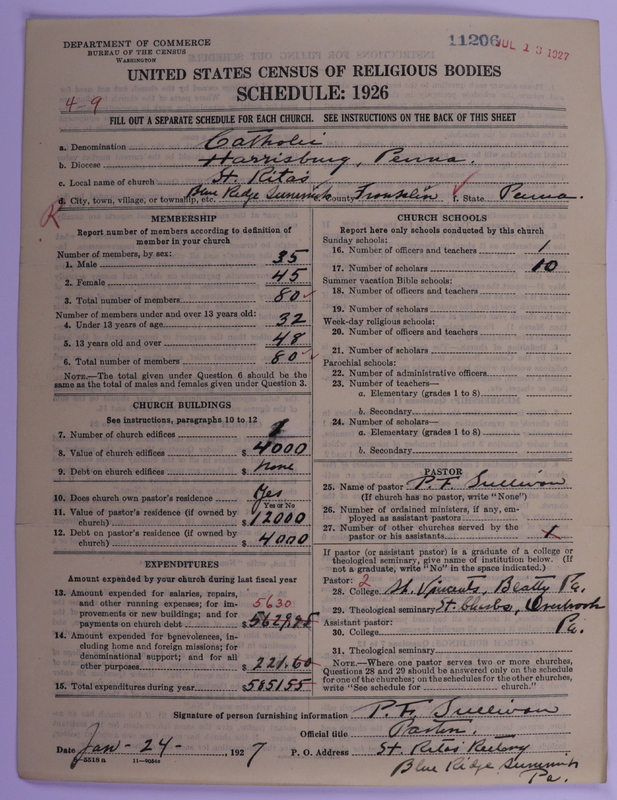 DEPARTMENT OF COMMERCE
BUREAU OF THE CENSUS
WASHINGTON
11206 JUL 13 1927
UNITED STATES CENSUS OF RELIGIOUS BODIES
SCHEDULE: 1926
4-9
FILL OUT A SEPARATE SCHEDULE FOR EACH CHURCH. SEE INSTRUCTIONS ON THE BACK OF THIS SHEET
a. Denomination Catholic
b. Diocese Harrisburg, Penna.
c. Local name of church St. Ritas
d. City, town, village, or township, etc. Blue Ridge Summit County Franklin f. State Penna.
R
MEMBERSHIP
Report number of members according to definition of member in your church
Number of members, by sex:
1. Male 35
2. Female 45
3. Total number of members 80
Number of members under and over 13 years old:
4. Under 13 years of age 32
5. 13 years old and over 48
6. Total number of members 80
NOTE.—The total given under Question 6 should be the
same as the total of males and females given under Question 3.
CHURCH BUILDINGS
See instructions, paragraphs 10 to 12
7. Number of church edifices 1
8. Value of church edifices $ 4000
9. Debt on church edifices $ None
10. Does church own pastor's residence Yes
Yes or No
11. Value of pastor's residence (if owned by
church) $ 12000
12. Debt on pastor's residence (if owned by
church) $ 4000
EXPENDITURES
Amount expended by your church during last fiscal year
13. Amount expended for salaries, repairs,
and other running expenses; for im-
provements or new buildings; and for
payments on church debt 5630
14. Amount expended for benevolences, in-
cluding home and foreign missions; for
denominational support; and for all
other purposes $ 221.60
15. Total expenditures during year
CHURCH SCHOOLS
Report here only schools conducted by this church
Sunday schools:
16. Number of officers and teachers 1
17. Number of scholars 10
Summer vacation Bible schools:
18. Number of officers and teachers
19. Number of scholars
Week-day religious schools:
20. Number of officers and teachers
21. Number of scholars
Parochial schools:
22. Number of administrative officers
23. Number of teachers—
a. Elementary (grades 1 to 8)
b. Secondary
24. Number of scholars—
a. Elementary (grades 1 to 8)
b. Secondary
PASTOR
25. Name of pastor P. F. Sullivan
(If church has no pastor, write "None")
26. Number of ordained ministers, if any, em-
ployed as assistant pastors
27. Number of other churches served by the
pastor or his assistants
If pastor (or assistant pastor) is a graduate of a college or
theological seminary, give name of institution below. (If
not a graduate, write "No" in the space indicated.)
Pastor: 2
28. College St. Vincents, Beatty Pa.
29. Theological seminary St. Charles, Overbrook
Assistant pastor: Pa.
30. College
31. Theological seminary
NOTE.—Where one pastor serves two or more churches,
Questions 28 and 29 should be answered only on the schedule
for one of the churches; on the schedules for the other churches,
write "See schedule for church."
Signature of person furnishing information P. F. Sullivan
Official title Pastor.
Date Jan - 24 - , 1927 P. O. Address St. Ritas Rectory
8-5518 a Blue Ridge Summit
Pa.